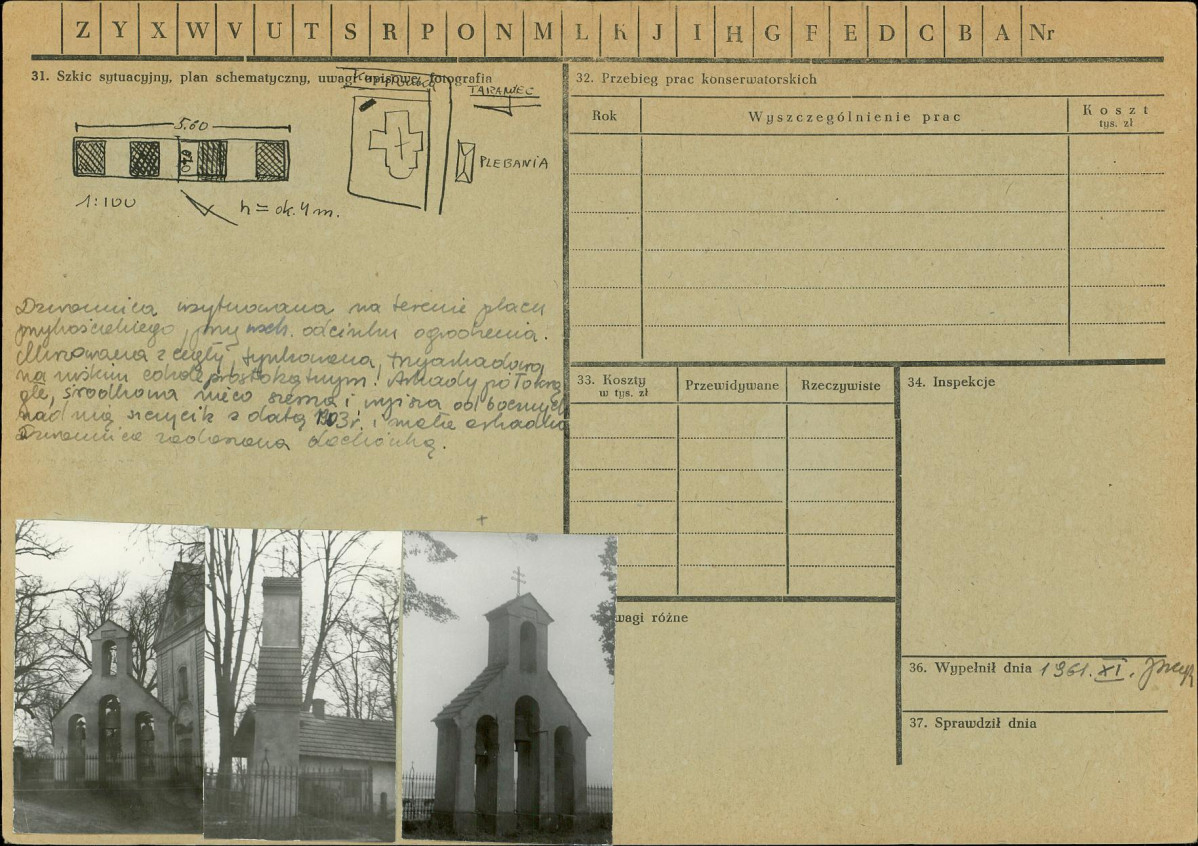 Z Y X W V U T S R P O N M L K J I H G F E D C B A Nr
31. Szkic sytuacyjny, plan schematyczny, uwagi opisowe, fotografia
TARAWEC
5.60
PLEBANIA
1:100
h = ok. 4 m.
Dzwonnica usytuowana na terenie placu
przykościelnego, przy wsch. odcinku ogrodzenia.
Murowana z cegły, tynkowana, trzyarkadowa,
na niskim cokole prostokątnym. Arkady półokrą
głe, środkowa nieco szersza i wyższa od bocznych
nad nią szczycik z datą 1903r. i mała arkadka
Dzwonnica zadaszona dachówką.
32. Przebieg prac konserwatorskich
Rok
Wyszczególnienie prac
Koszt
tys. zł
33. Koszty
w tys. zł
Przewidywane
Rzeczywiste
34. Inspekcje
wagi różne
36. Wypełnił dnia 1961. XI.
37. Sprawdził dnia